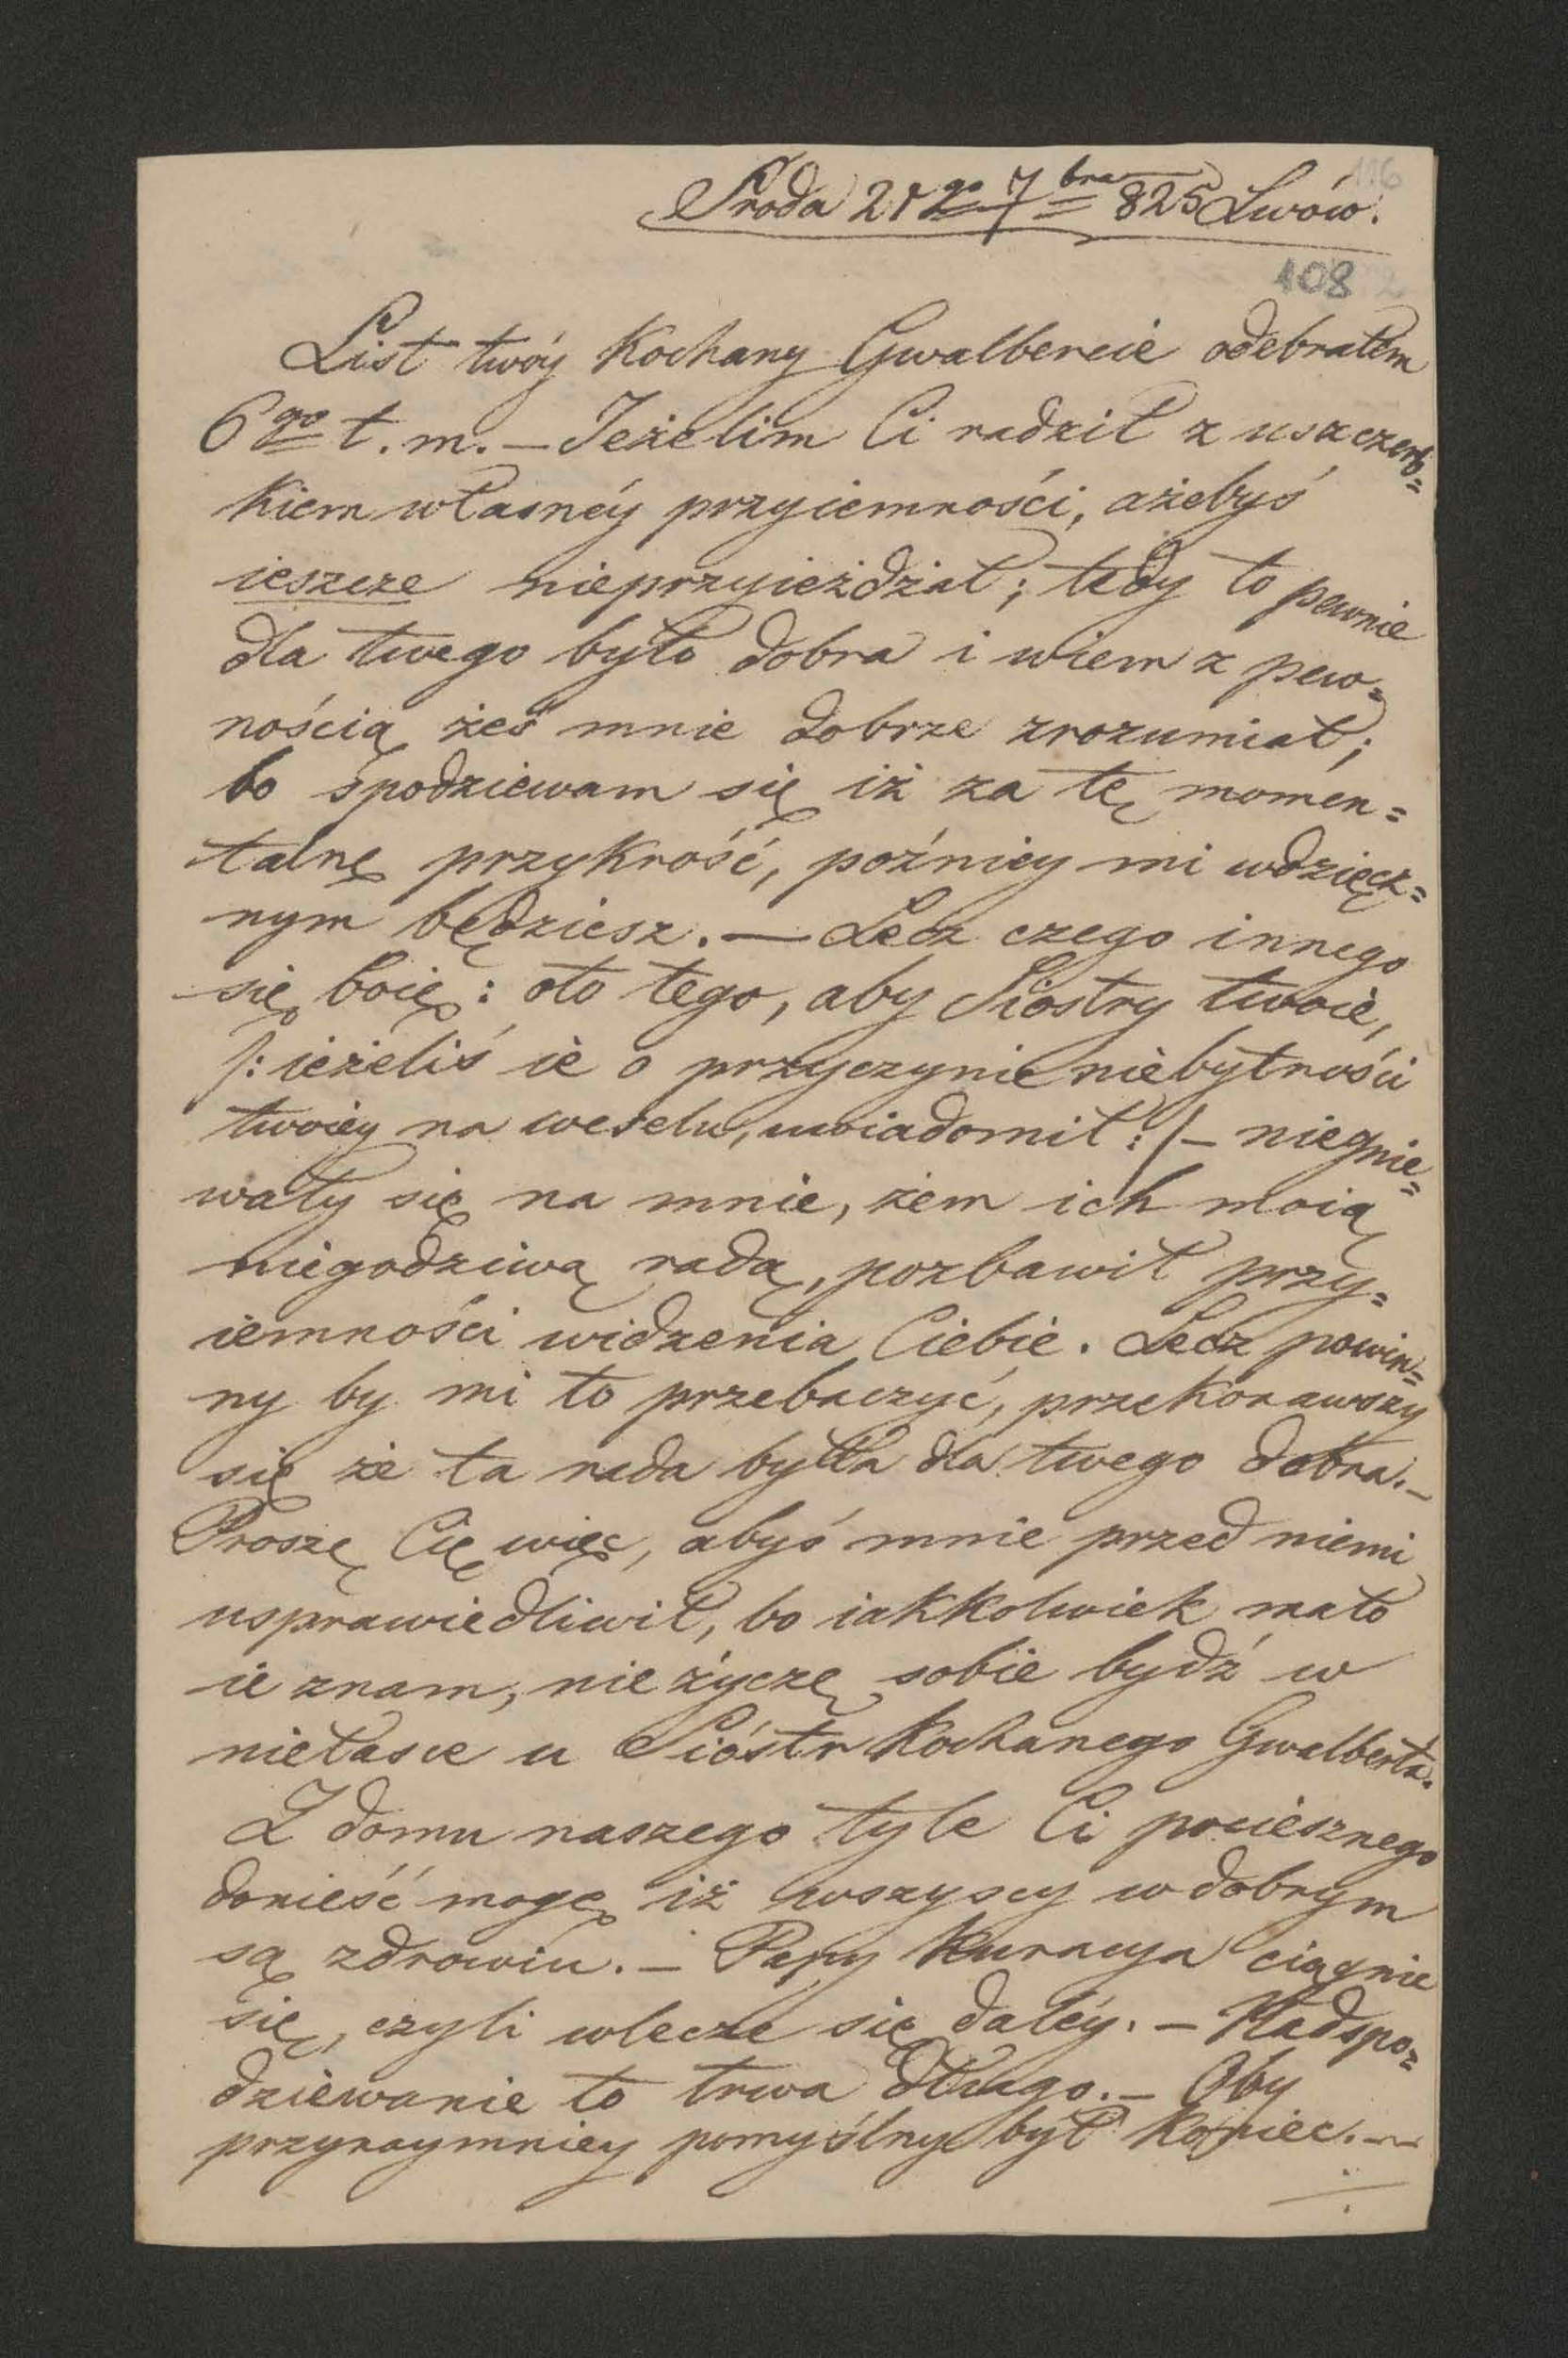 116
Środa 21go 7bra 825 Lwów.
108
List twóy kochany Gwalbercie odebrałem
6go t. m. — Jeżelim Ci radził z uszczerb=
kiem własnéy przyiemności, ażebyś
ieszcze nieprzyieżdżał; tedy to pewnie
dla twego było dobra i wiem z pew=
nością żeś mnie dobrze zrozumiał;
bo spodziewam się iż za tę momen=
talnę przykrość, poźniey mi wdzięcz=
nym będziesz. — Lecz czego innego
się boię: oto tego, aby Siostry twoie,
/: ieżeliś ie o przyczynie niebytności
twoiey na weselu, uwiadomił :/ — niegnie=
wały się na mnie, żem ich moią
niegodziwą radą, pozbawił przy=
iemności widzenia Ciebie. Lecz powin=
ny by mi to przebaczyć, przekonawszy
się że ta rada była dla twego dobra. —
Proszę Cię więc, abyś mnie przed niemi
usprawiedliwił, bo iakkolwiek mało
ie znam, nie życzę sobie bydź w
niełasce u Sióstr kochanego Gwalberta.
Z domu naszego tyle Ci pociesznego
donieść mogę iż wszyscy w dobrym
są zdrowiu. — Papy kuracya ciągnie
się, czyli wlecze się daléy. — Nadspo=
dziewanie to trwa długo. — Oby
przynaymniey pomyślny był koniec. —